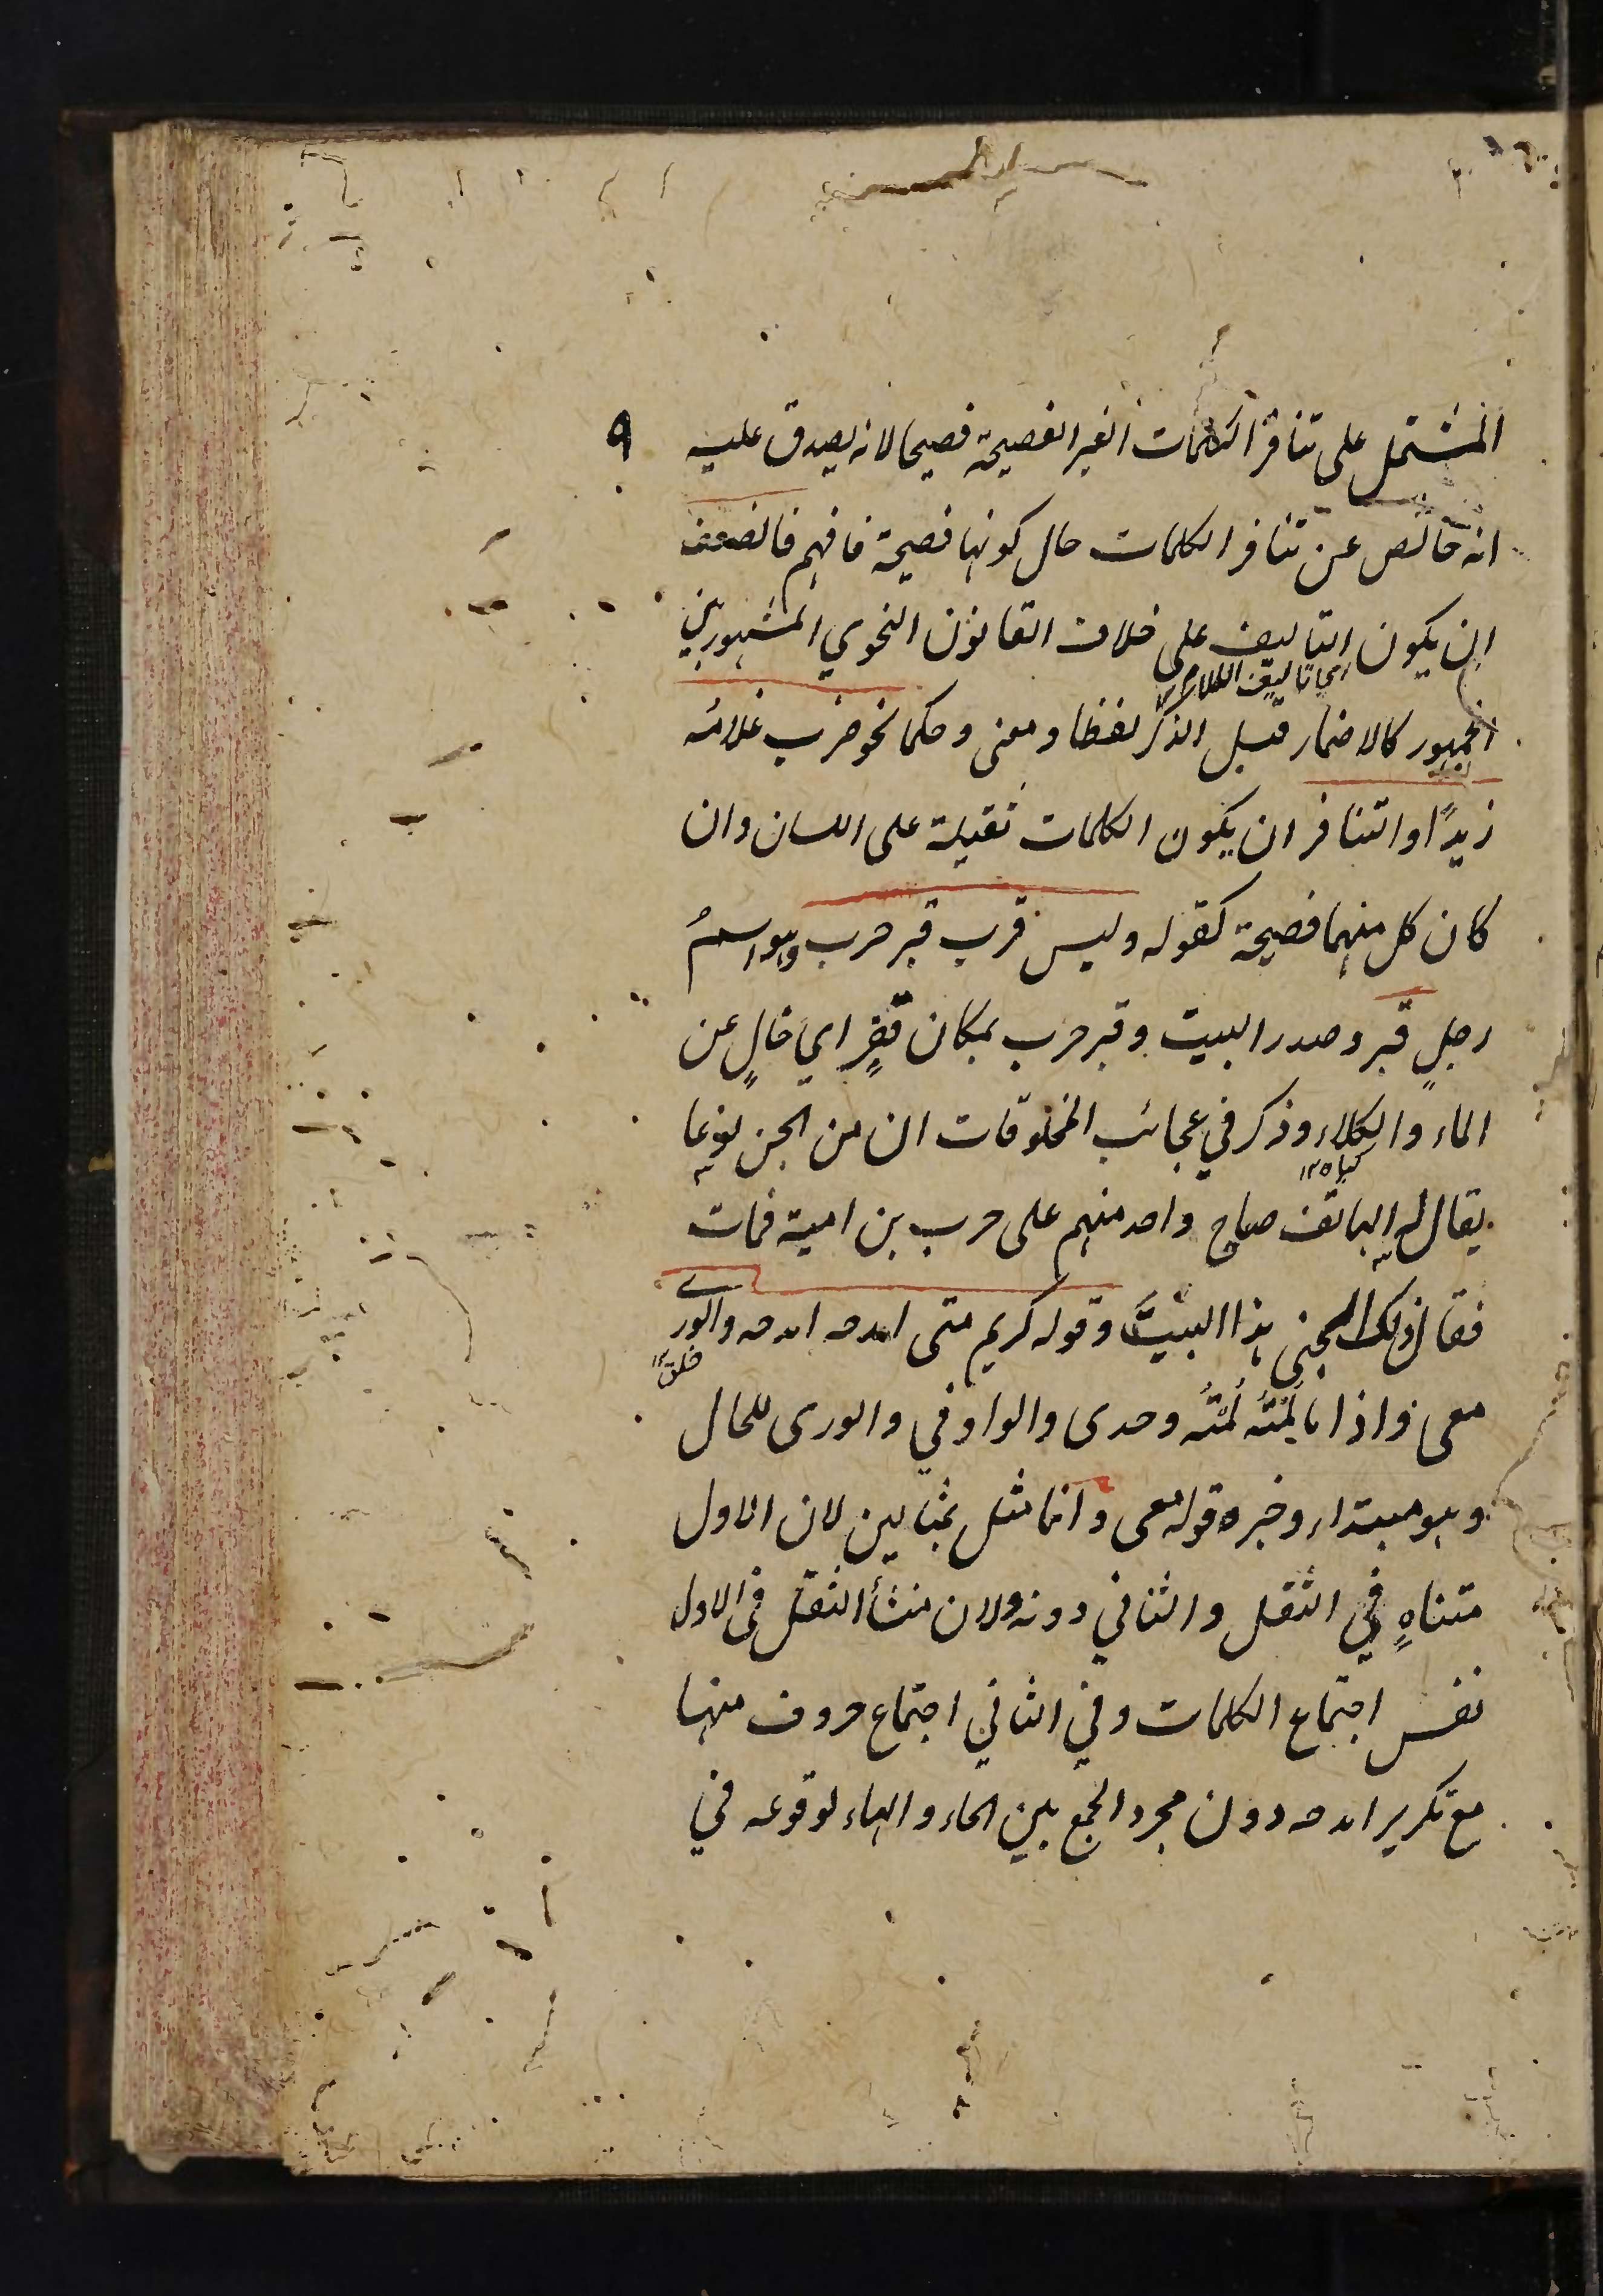 ٩
المشتمل على تنافر الكلمات الغير الفصيحة فصيحا لانه يصدق عليه
انه خالص عن تنافر الكلمات حال كونها فصيحة فافهم فالضعف
ان يكون التاليف على خلاف القانون النحوي المشهور بين
اي تاليف الكلام ١٢
الجمهور كالاضمار قبل الذكر لفظا ومعنى وحكما نحو ضرب غلامُه
زيدًا والتنافر ان يكون الكلمات ثقيلة على اللسان وان
كان كل منهما فصيحة كقوله وليس قرب قبر حرب وهو اسمُ
رجلٍ قبر وصدر البيت وقبر حرب بمكان قفرٍ اي خالٍ عن
الماء والكلاء وذكر في عجائب المخلوقات ان من الجن نوعا
كياه ١٢
يقال له الهاتف صاح واحد منهم على حرب بن امية فمات
فقال ذلك الجني هذا البيتَ وقوله كريم متى امدحه امدحه والورى
خلق ١٢
معى واذا ما لُمْتُه لُمْتُه وحدى والواو في والورى للحال
وهو مبتداء وخبره قوله معى وانما مثل بمثالين لان الاول
متناهٍ في الثقل والثاني دونه ولان منشأ الثقل فى الاول
نفس اجتماع الكلمات وفي الثاني اجتماع حروف منها
مع تكرير امدحه دون مجرد الجمع بين الحاء والهاء لوقوعه في